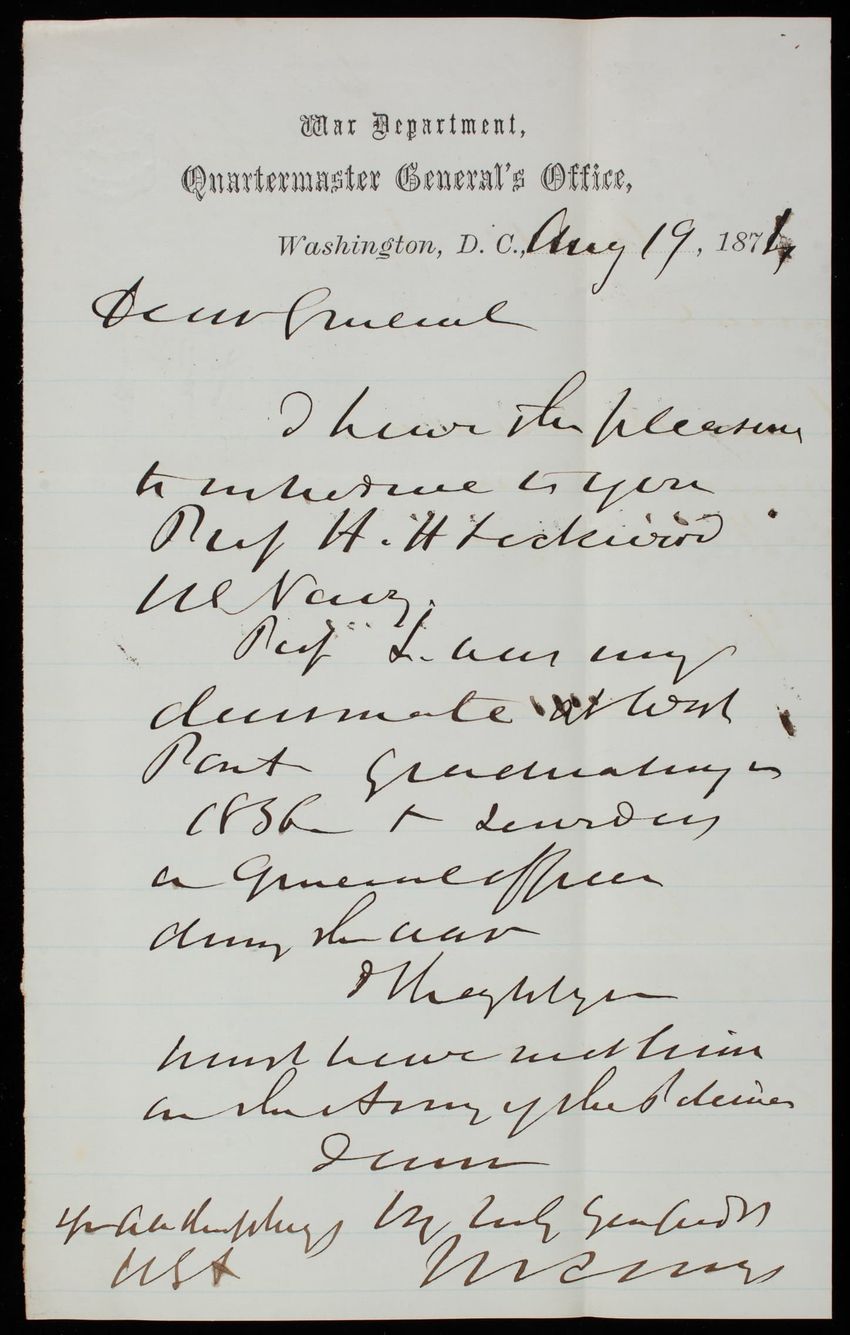 War Department,
Quartermaster General's Office,
Washington, D. C., Aug 19, 187
Dear General
I have the pleasure
to introduce to you
Prof H. H Lockwood
US Navy.
Prof L. was my
classmate at West
Point graduating in
1836 &
a General officer
during the war
I thought you
must have met him
in the Army of the Potomac
I am
Gen AA Humphreys Very truly Your friend
USA M C Meigs